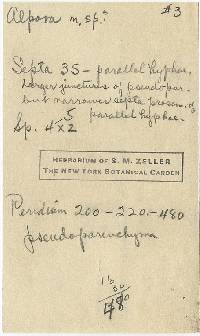 Alpova n. sp.? #3
Septa 35 - parallel hyphae.
Larger junctures of pseudopar.
but narrower septa prosen. of
parallel hyphae.
Sp. 4 x 2 5
HERBARIUM OF S. M. ZELLER
THE NEW YORK BOTANICAL GARDEN
Peridium 200 - 220 - 480
pseudoparenchyma
480